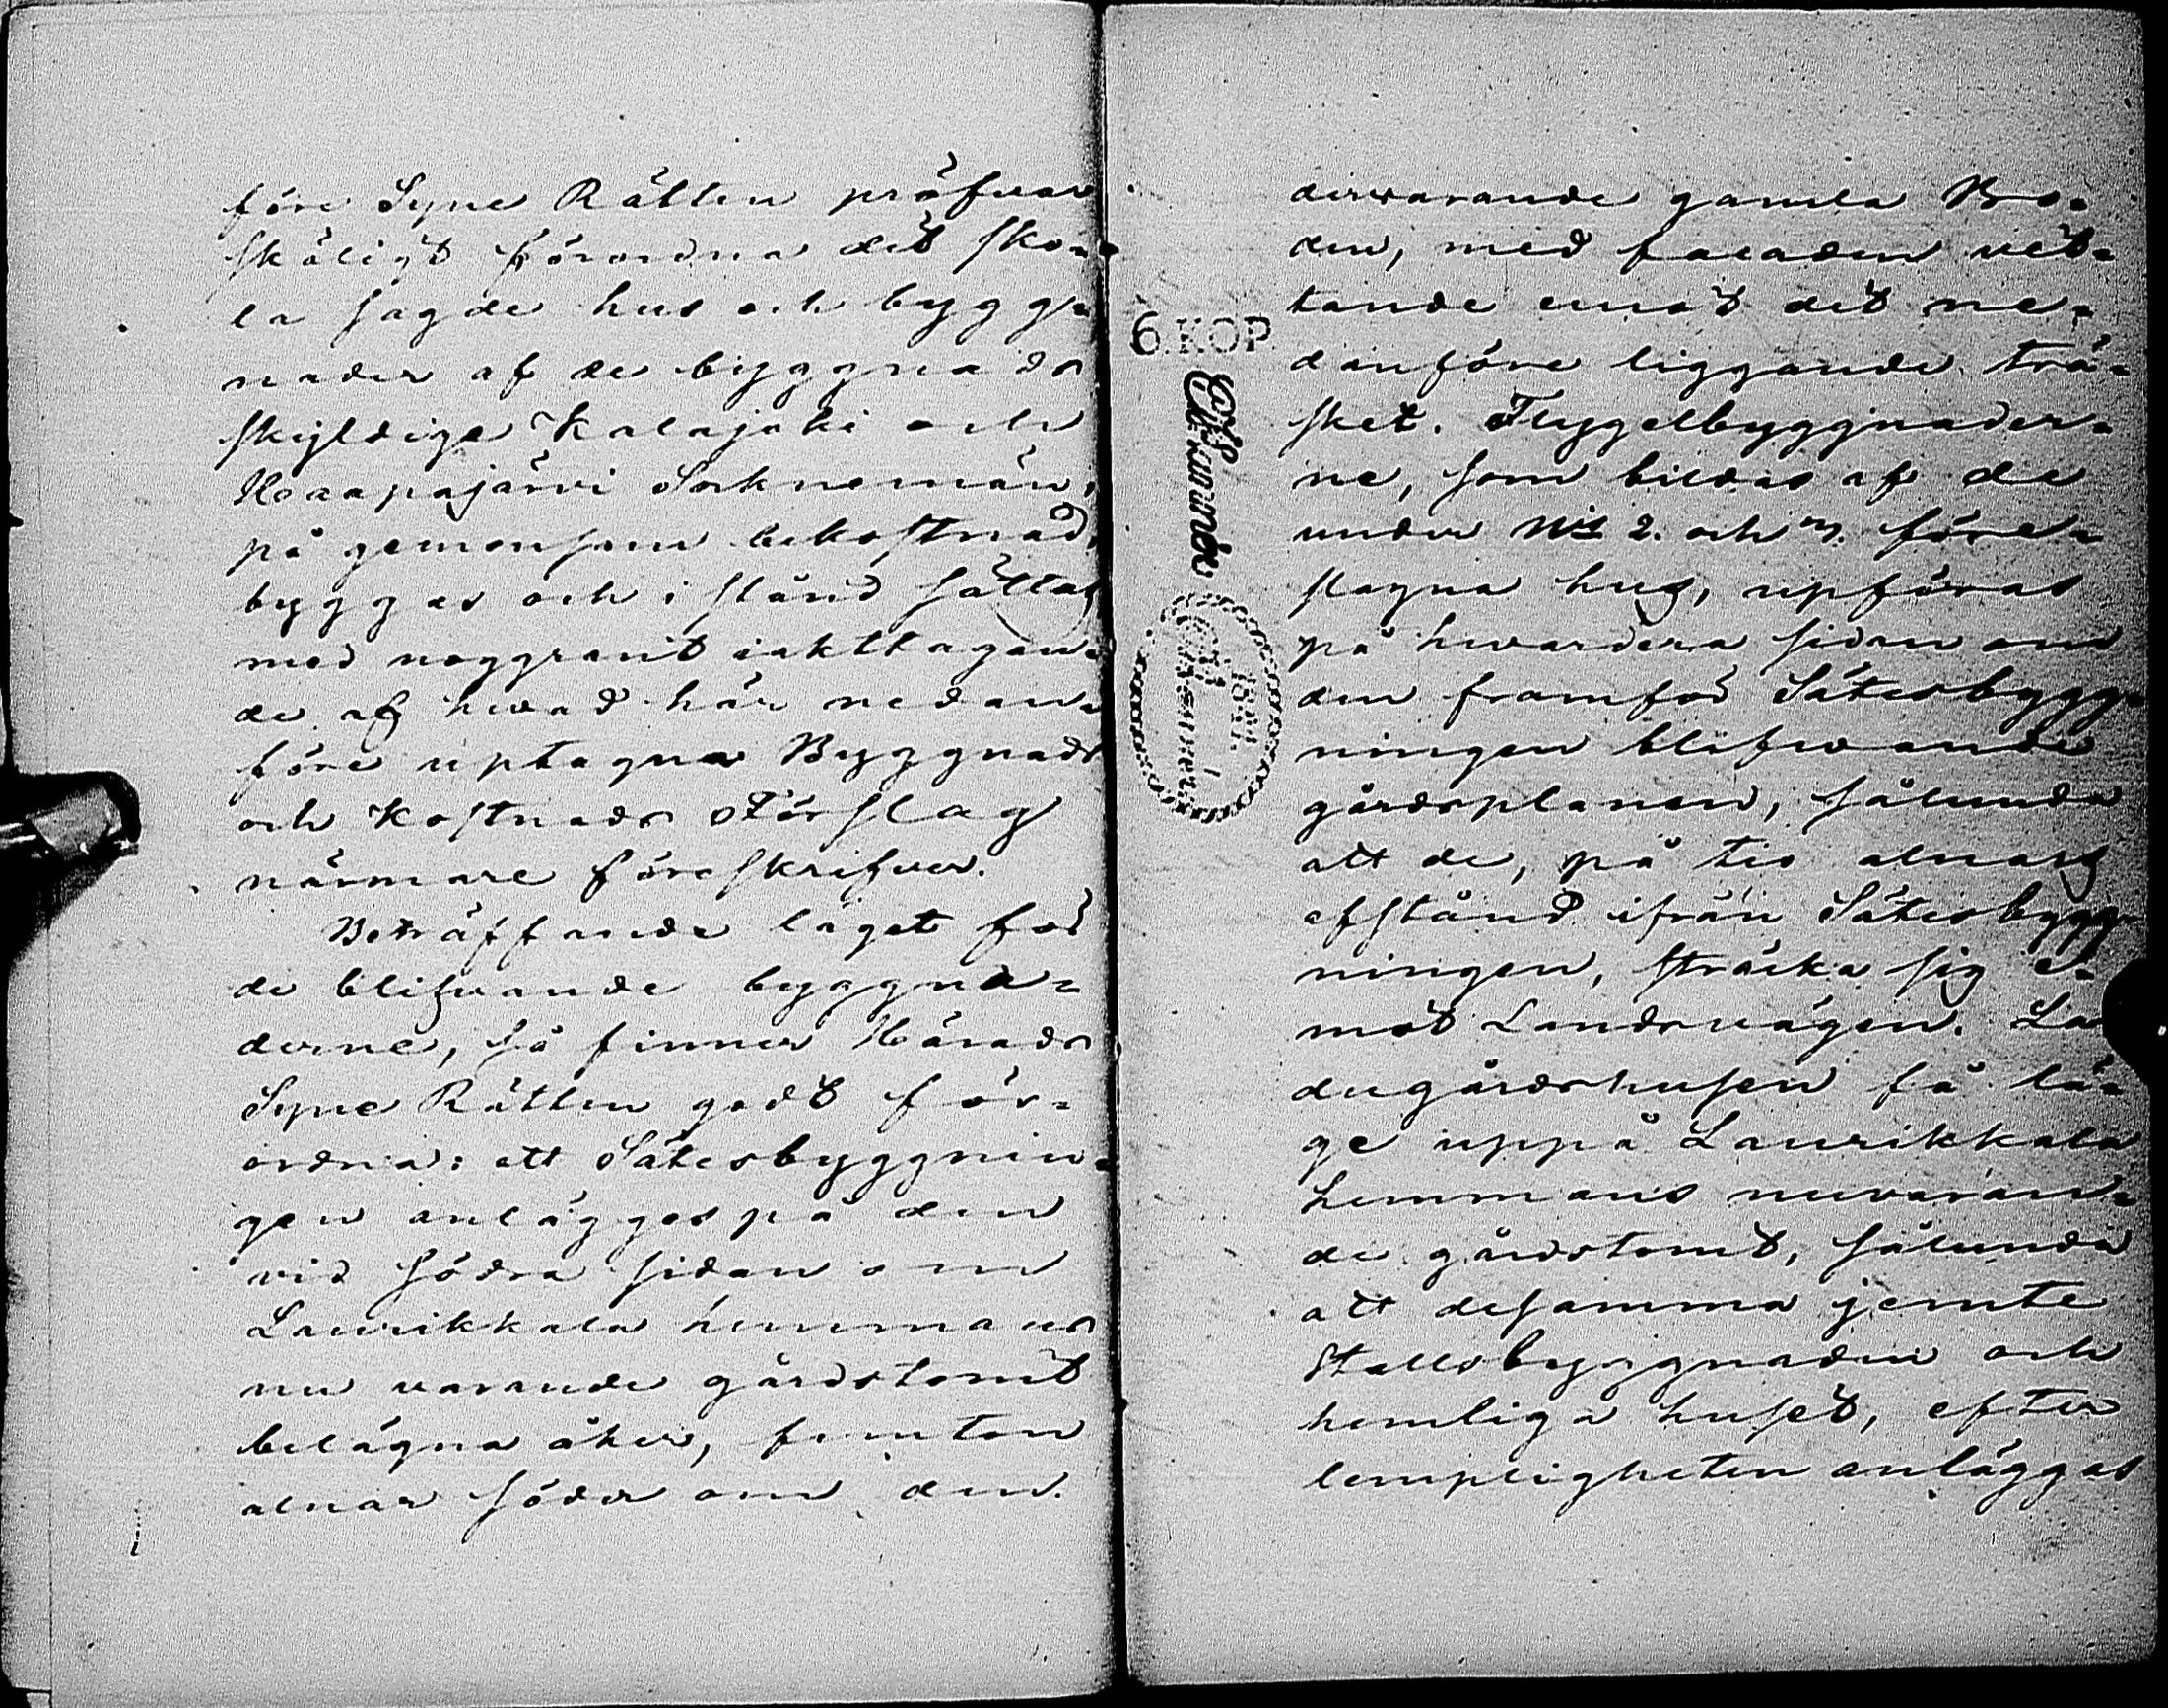 före Syne Rätten pröfvar
skäligt förordna det sko-
la sagde hus och bygg-
nader af de byggnads
skyldige Kalajoki och
Haapajärvi Socknemän,
på gemensam bekostnad,
byggas och i stånd sättas
med noggrant iakttagan-
de af hvad här nedan-
före uptagna Byggnads
och Kostnads Förslag
närmare föreskrifver.
Beträffande läget för
de blifvande byggna-
derne, så finner Härads
Syne Rätten godt för-
ordna: att Sätesbyggnin-
gen anlägges på den
vid södra sidan om
Laurikkala hemmans
nu varande gårdstomt
belägna åker, femton
alnar söder om den
6. KOP.
Ekmander
dervarande gamla Bo-
den, med facaden vet-
tande emot det ne-
danföre liggande trä-
sket. Flygelbyggnader-
ne, som bildas af de
under N:is 2. och 3. före-
slagna hus, upföras
på hvardera sidan om
den framför Sätesbygg-
ningen blifvande
gårdsplanen, sålunda
att de, på tio alnars
afstånd ifrån Sätesbygg-
ningen, sträcka sig e-
mot Landsvägen. La-
dugårdshusen få lä-
ge uppå Laurikkala
hemmans nuvaran-
de gårdstomt, sålunda
att desamma jemte
Stallsbyggnaden och
hemliga huset, efter
lempligheten anläggas